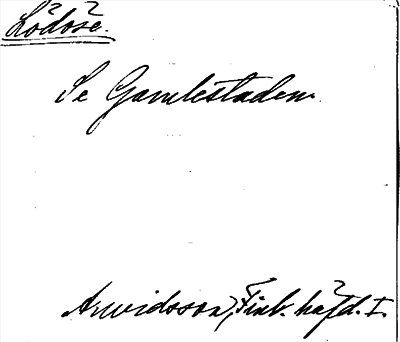 Lödöse.
Se Gamlestaden.
Arwidsson, Finl. häfd. I.